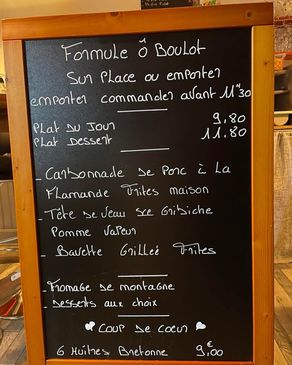 Formule Ô Boulot
Sur Place ou emporter
emporter commander avant 11"30
Plat du Jour 9,80
Plat Dessert 11.80
- Carbonnade de Porc à La
Flamande Frites maison
- Tête de veau sce Gribiche
Pomme vapeur
- Bavette Grilleé Frites
- Fromage de montagne
- Desserts aux choix
Coup de coeur
6 Huîtres Bretonne 9,00